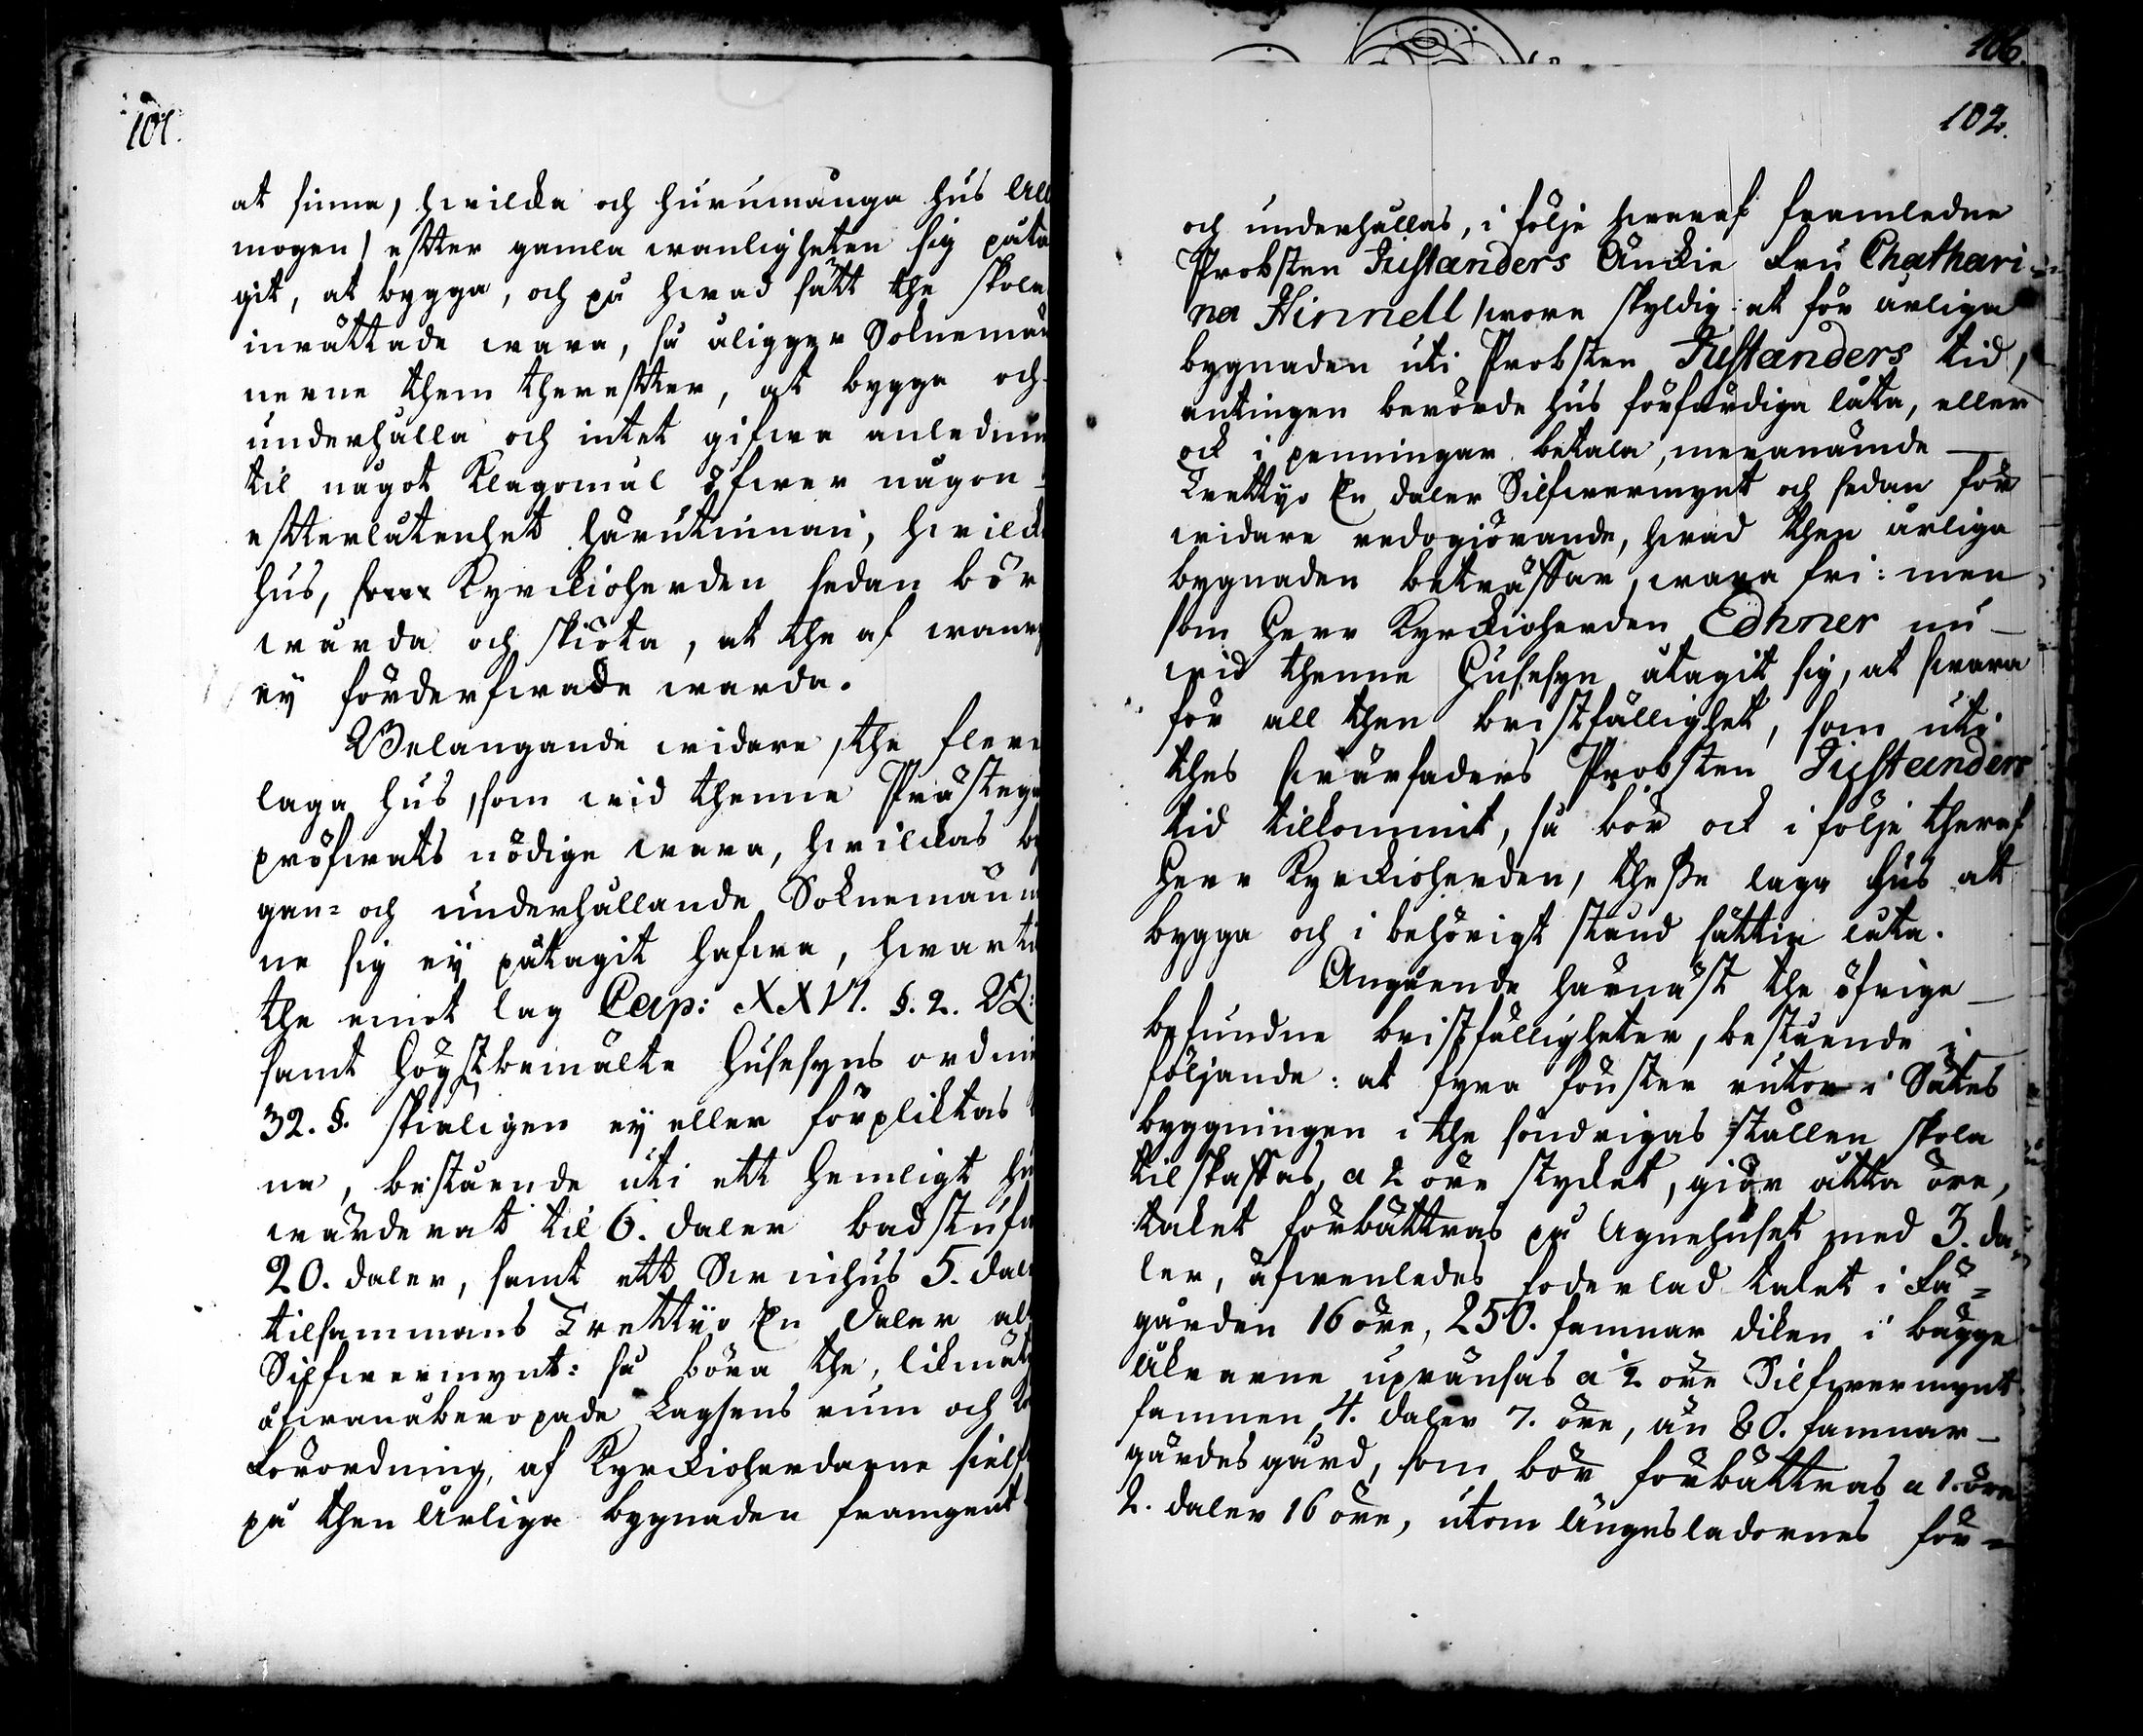 101.
at finna, hwilka och huru många hus All
mogen, eftter gamla wanligheten sig påta
git, at bygga, och på hwad sätt the skola
inrättade wara, så åligger Soknemän
nerne them thereftter, at bygga och
underhålla och intet gifwa anledning
til något Klagomål öfwer någon
eftterlåtenhet härutinnan, hwilka
hus, som Kyrckioherden sedan bör
wårda och skiöta, at the af wanr
ej förderfwade warda.
Belangande widare, the flere
laga hus, som wid thenne Prästegå
pröfwats nödige wara, hwilckas by
gan= och underhållande Soknemänn
ne sig ej påtagit hafwa, hwarti
the emot lag Cap: XXVI. §. 2. BB:
samt Högstbemälte Husesyns ordni
32. §. skieligen ej eller förpliktas
na, bestående uti ett Hemligt hu
wärderat til 6. daler badstufu
20. daler, samt ett Swinhus 5. dale
tilsammans Trettijo En Daler alt
Silfwermynt: så böra the, likmät
åfwanåberopade Lagsens rum och
Förordning, af Kyrckioherdarne sielf
på then årliga bygnaden framgent
106.
102.
och underhållas, i följe hwaraf framledne
Probsten Justanders Änckia Fru Chathari-
na Hinnell, wore skyldig: at för årliga
bygnaden uti Probsten Justanders tid,
antingen berörde hus förfärdiga låta, eller
ock i penningar betala, meranämde
Trettijo En daler Silfwermynt och sedan för
widare redogiörande, hwad then årliga
bygnaden beträffar, wara fri: men
som Herr Kyrckioherden Edhner nu
wid thenne Husesyn åtagit sig, at swara
för all then bristfällighet, som uti
thes Swärfaders Probsten Justanders
tid tilkommit, så bör ock i följe theraf
Herr Kyrckioherden, theße laga hus at
bygga och i behörigt stånd sättia låta.
Angående härnäst the öfrige
befundne bristfälligheter, bestående i
följande: at fyra fönster rutor i Sätes
byggningen i the söndrigas ställen skola
tilskaffas, a 2 öre stycket, giör åtta öre,
taket förbättras på Agnehuset med 3. da=
ler, äfwenledes foderlad taket i Fä=
gården 16 öre, 250. famnar diken i bägge
åkrarne uprensas a ½ öre Silfwermynt
famnen, 4. daler 7. öre, än 80. famnar
gärdes gård, som bör förbättras a 1. öre
2. daler 16 öre, utom ängesladornes för=